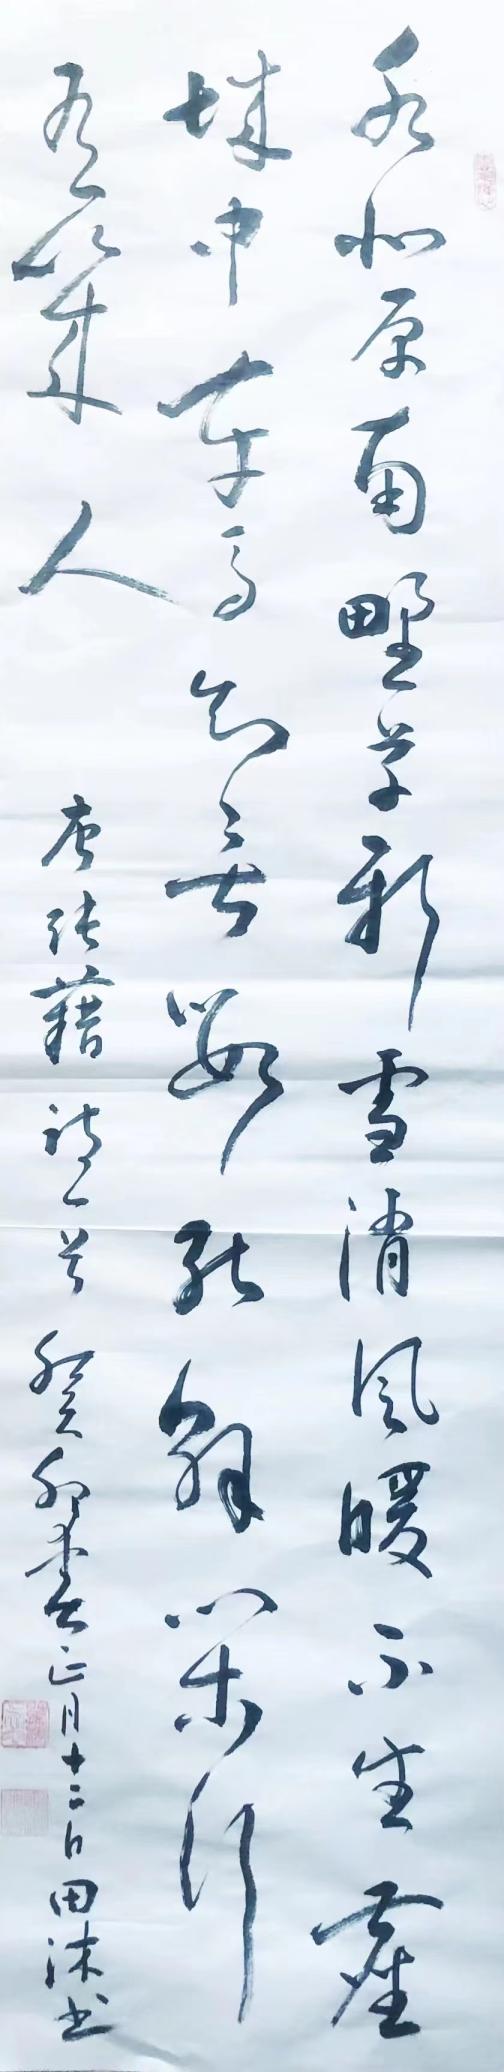 水北原南野草新雪消風暖不生塵
城中車馬知無數能解閑行
有幾人
唐張藉詩一首 癸卯春正月十二日田沫书